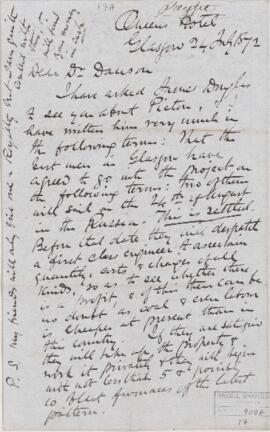 Queens Hotel
Glasgow 24 July 1872
Dear Dr Dawson
I have asked James Douglas
to see you about Pictou, I
have written him very much in
the following terms: That the
best men in Glasgow have
agreed to go into the project on
the following terms: two of them
will sail on the 24th of August
in the Russian. This is settled.
Before that date they will despatch
a first class engineer to ascertain
quantity, costs & charges of all
kinds, so as to see whether there
is a profit, & if this there can be
no doubt as coal & even labour
is cheaper at present than in
this country. If they are satisfied
they will take up the property &
work it privately & they will begin
with not less than 5 & possibly
10 blast furnaces of the latest
pattern.
P.S. My friends will only give one a Royalty but I am quite
satisfied with
this
McGILL UNIVERSITY